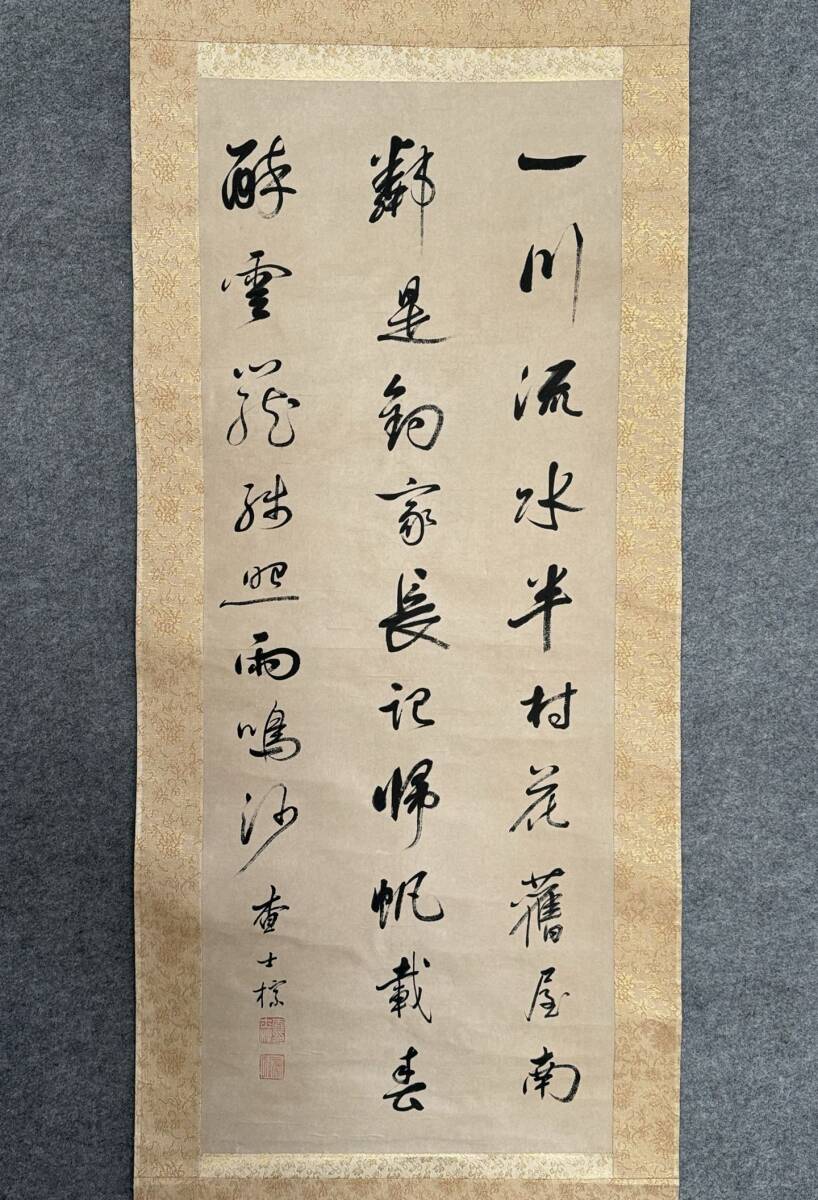 一川流水半村花舊屋南
鄰是釣家長記歸帆載春
醉雲籠殘照雨鳴沙
查士標